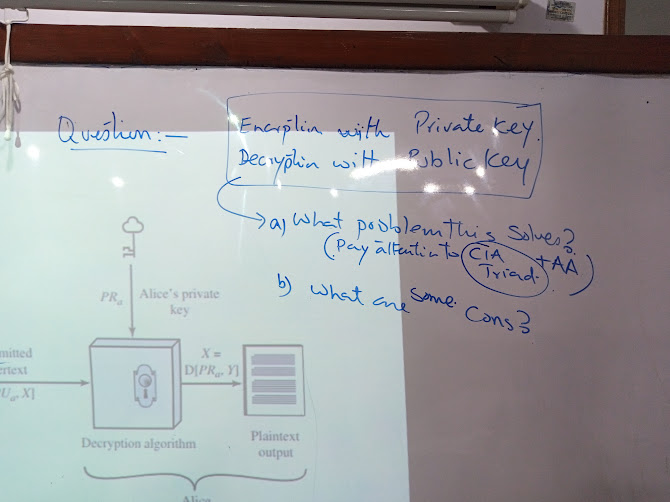 Question:-
Encryption with Private Key.
Decryption with Public Key
a) What problem this solves?
(Pay attention to CIA Triad + AA)
b) What are some cons?
PRa
Alice's private
key
mitted
ertext
Ua, X]
X =
D[PRa, Y]
Decryption algorithm
Plaintext
output
Alice